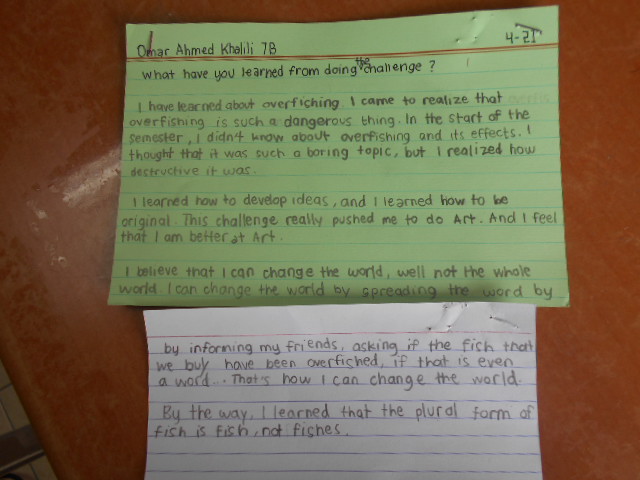 Omar Ahmed Khalili 7B
4-21
What have you learned from doing the challenge?
I have learned about overfiching. I came to realize that
overfishing is such a dangerous thing. In the start of the
semester, I didn't know about overfishing and its effects. I
thought that it was such a boring topic, but I realized how
destructive it was.
I learned how to develop ideas, and I learned how to be
original. This challenge really pushed me to do Art. And I feel
that I am better at Art.
I believe that I can change the world, well not the whole
world. I can change the world by spreading the word by
by informing my friends, asking if the fish that
we buy have been overfished, if that is even
a word... That's how I can change the world.
By the way, I learned that the plural form of
fish is fish, not fishes.